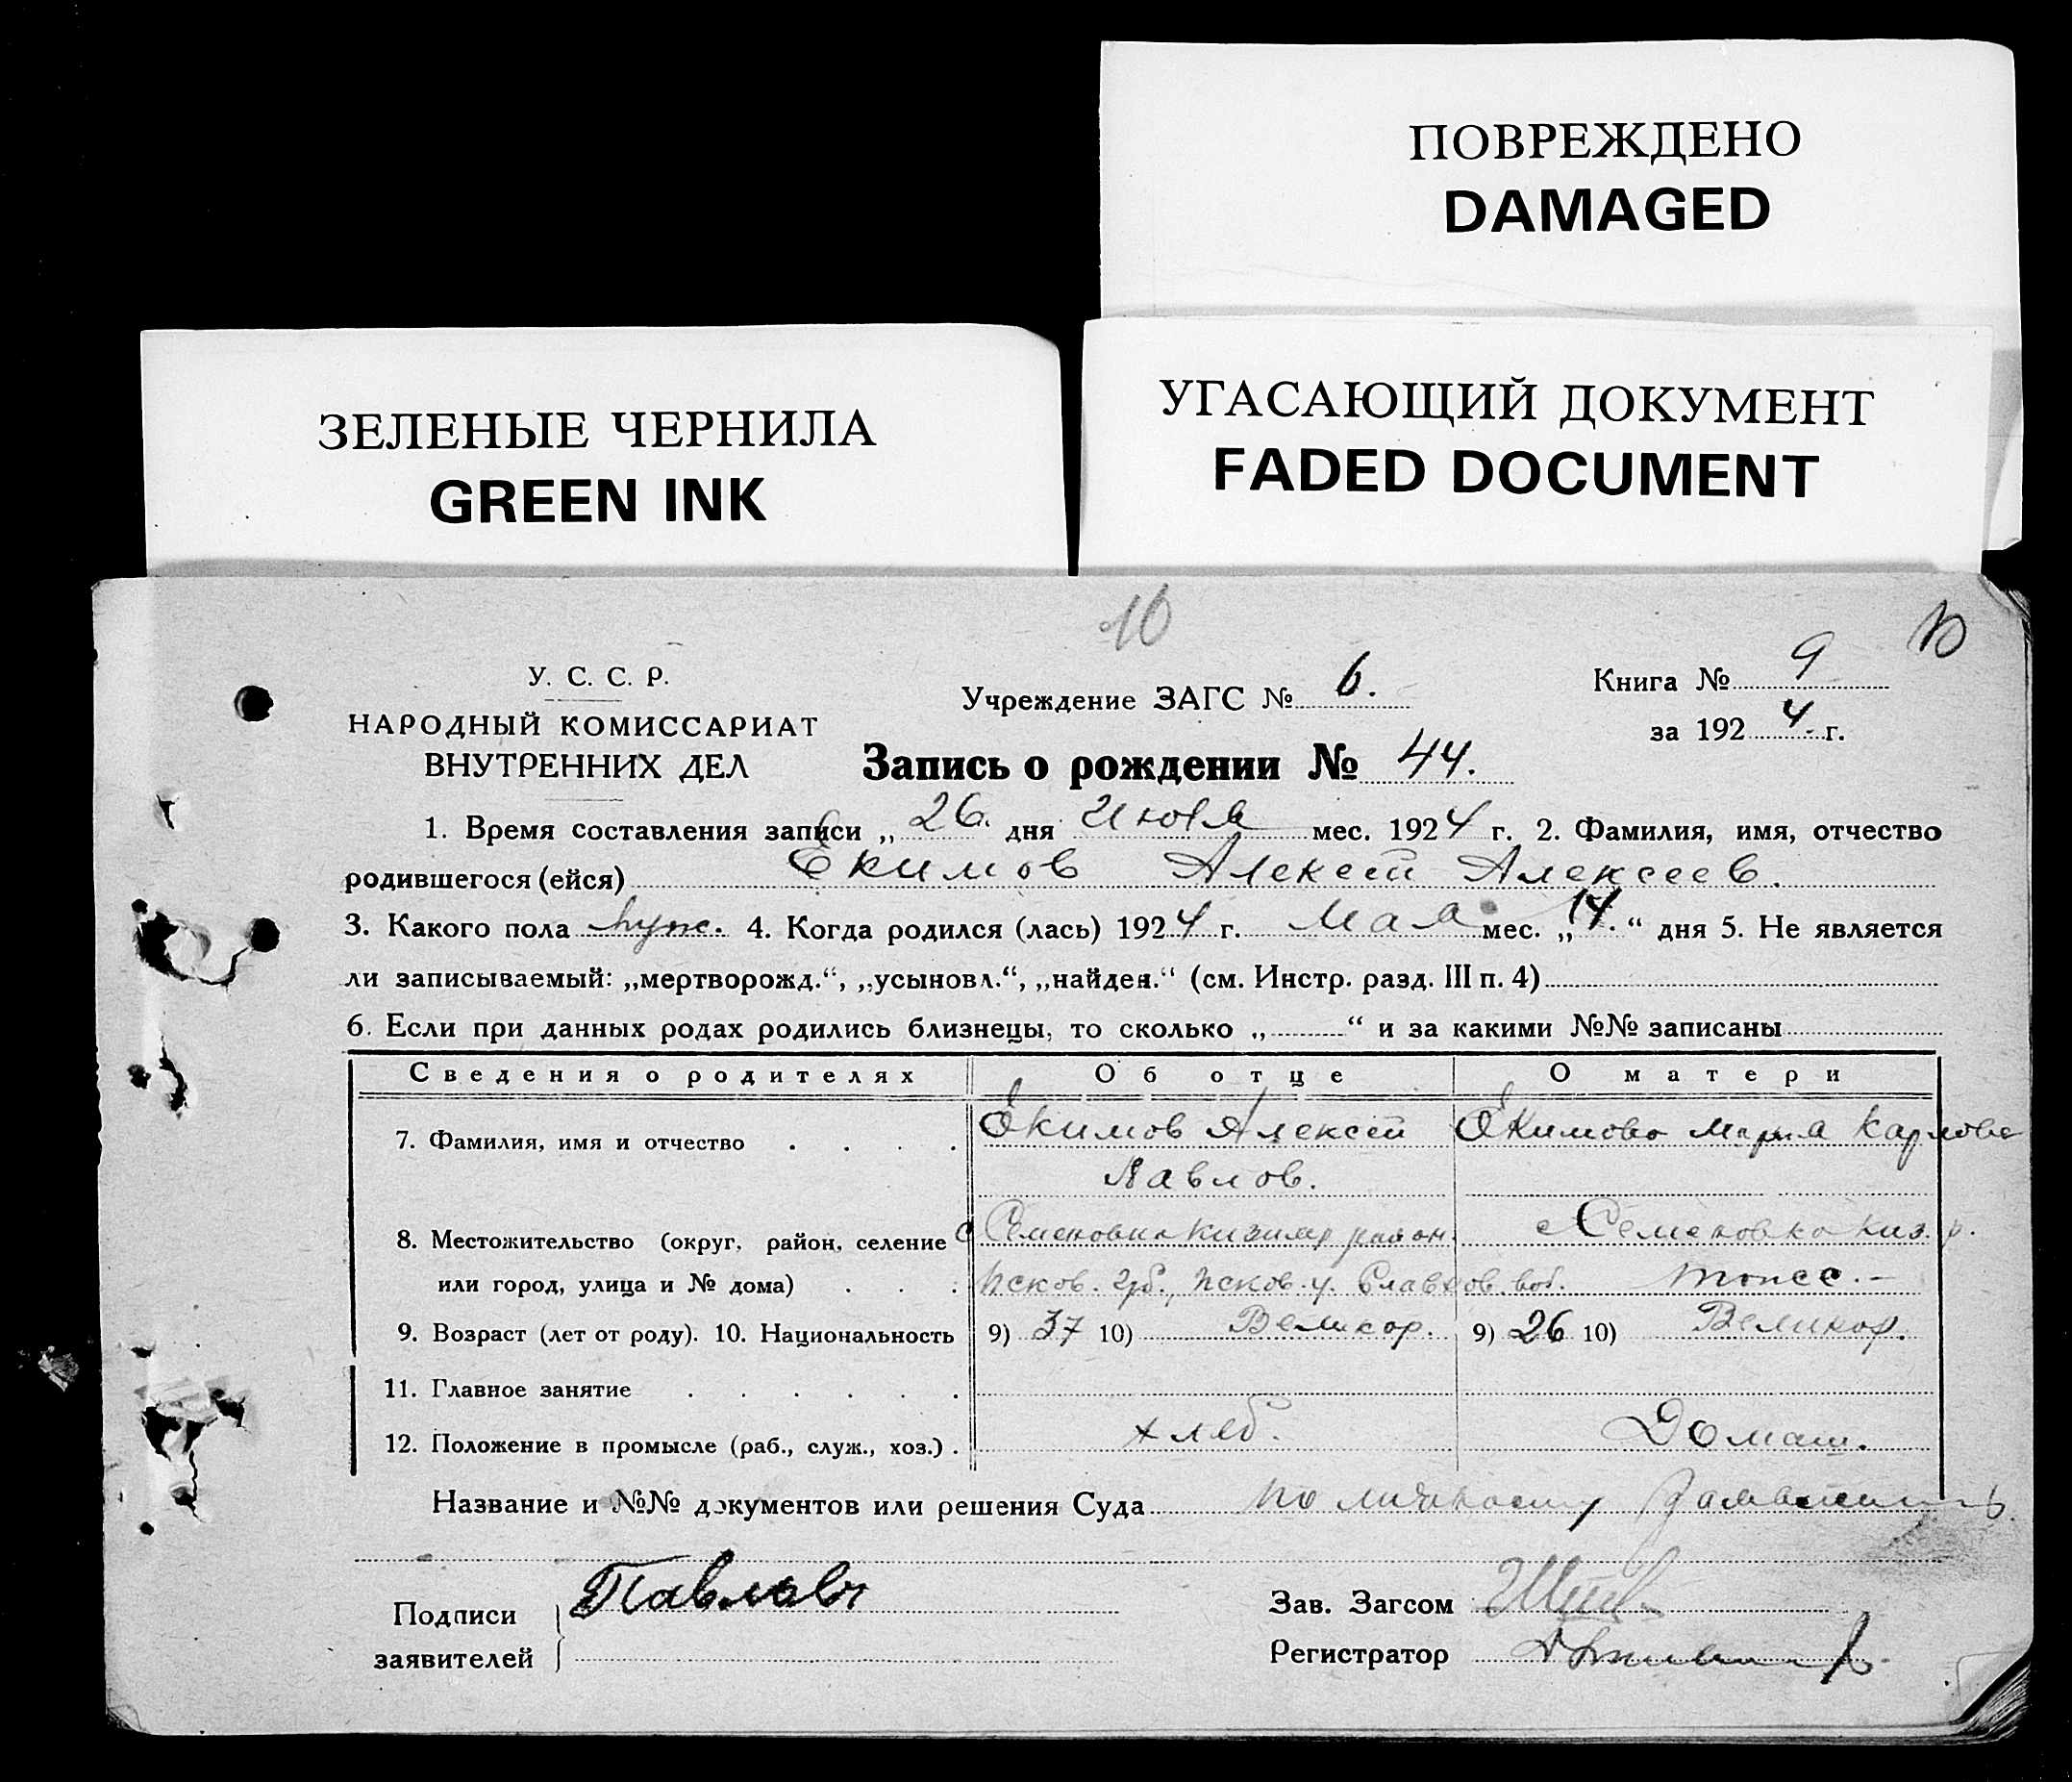 ПОВРЕЖДЕНО
DAMAGED
ЗЕЛЕНЫЕ ЧЕРНИЛА
GREEN INK
УГАСАЮЩИЙ ДОКУМЕНТ
FADED DOCUMENT
10
У. С. С. Р.
НАРОДНЫЙ КОМИССАРИАТ
ВНУТРЕННИХ ДЕЛ
Учреждение ЗАГС № 6.
Книга № 9
за 1924 г.
Запись о рождении № 44.
1. Время составления записи „26“ дня Июля мес. 1924 г. 2. Фамилия, имя, отчество
родившегося (ейся) Екимов Алексей Алексеев.
3. Какого пола муж. 4. Когда родился (лась) 1924 г. Мая мес. „14.“ дня 5. Не является
ли записываемый: „мертворожд.“, „усыновл.“, „найден.“ (см. Инстр. разд. III п. 4)
6. Если при данных родах родились близнецы, то сколько „ “ и за какими №№ записаны
Сведения о родителях Об отце О матери
7. Фамилия, имя и отчество Екимов Алексей Екимова Мария Карлова
Павлов.
8. Местожительство (округ, район, селение с Семеновка район. с Семеновка
или город, улица и № дома) Псков. губ., Псков. у. тоже.-
9. Возраст (лет от роду). 10. Национальность 9) 37 10) Великор. 9) 26 10) Великор.
11. Главное занятие
12. Положение в промысле (раб., служ., хоз.) хлеб. Домаш.
Название и №№ документов или решения Суда по личному
Подписи
заявителей
Зав. Загсом
Регистратор